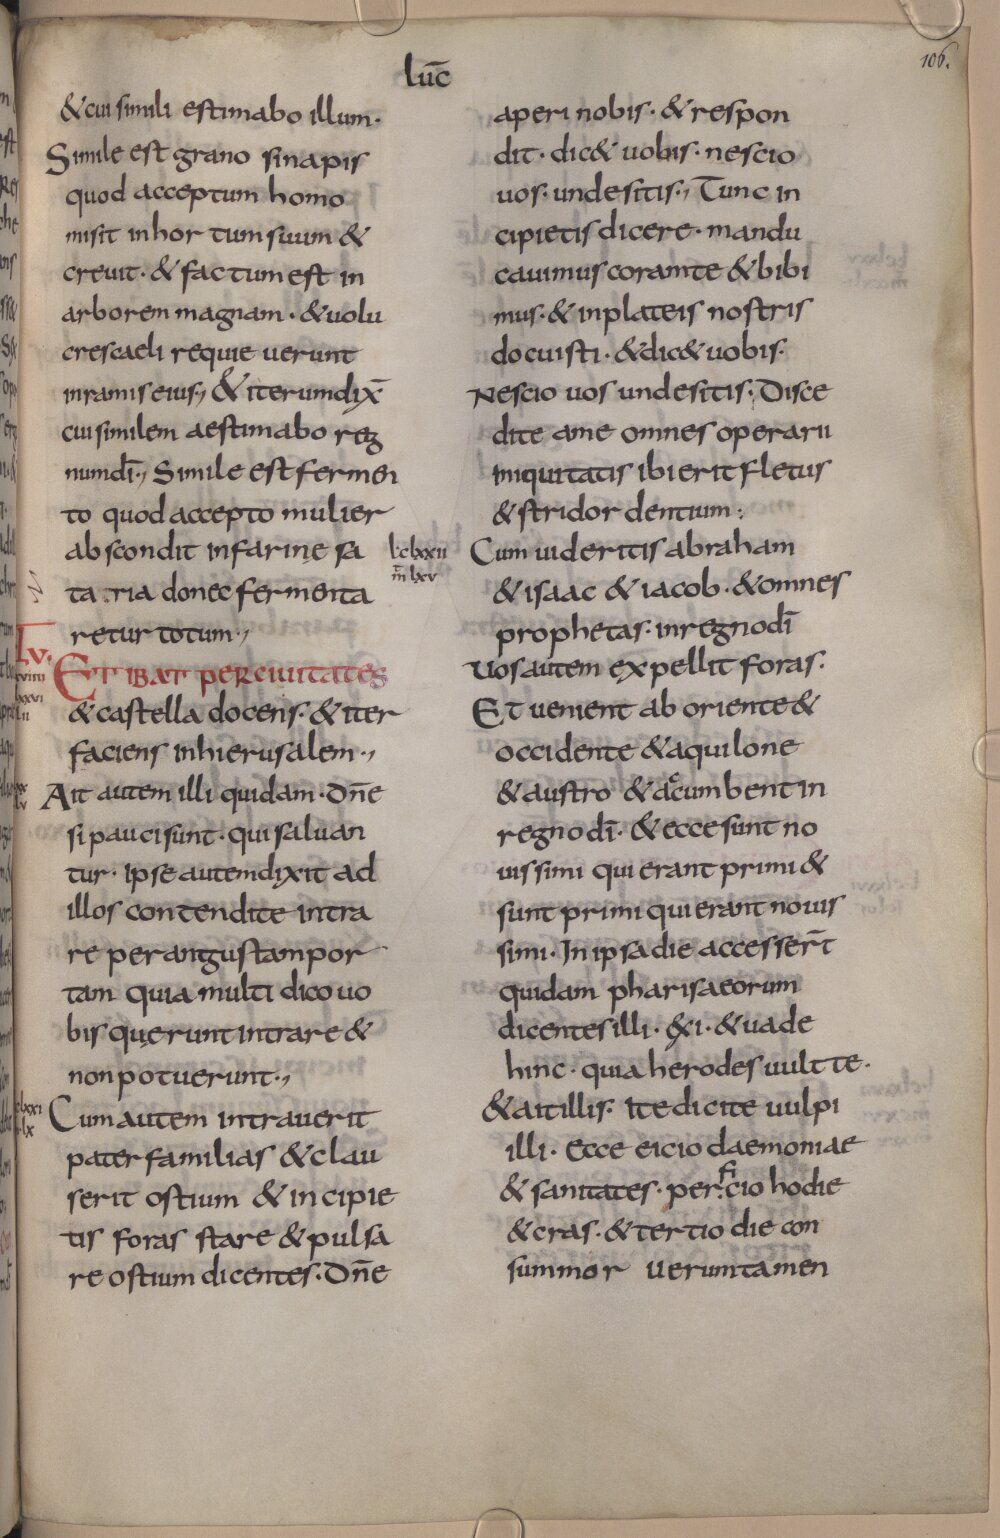 luc̄
106.
& cui simili estimabo illum·
Simile est grano sinapis
quod acceptum homo
misit inhortum suum &
creuit· & factum est in
arborem magnam· & uolu
crescaeli requieuerunt
inramis eius·, & iterum dix̄
cui similem aestimabo reg
num dī·, Simile est fermen
to quod accepto mulier
abscondit infarinę sa
ta tria donec fermenta
retur totum·,
Lv.
ET IBAT PER ciuitates
& castella docens· & iter
faciens inhierusalem·,
Ait autem illi quidam· Dn̄e
si pauci sunt· qui saluan
tur· ipse autem dixit ad
illos contendite intra
re per angustam por
tam quia multi dico uo
bis quęrunt intrare &
non potuerunt·,
Cum autem intrauerit
paterfamilias & clau
serit ostium & incipie
tis foras stare & pulsa
re ostium dicentes· Dn̄e
aperi nobis· & respon
dit· dic& uobis· nescio
uos· unde sitis·, Tunc in
cipietis dicere· mandu
cauimus coram te & bibi
mus· & inplateis nostris
docuisti· & dic& uobis·
Nescio uos unde sitis· Disce
dite a me omnes operarii
iniquitatis ibi erit fletus
& stridor dentium:
lcclxxii
m̄ lxv
Cum uideritis abraham
& isaac & iacob· & omnes
prophetas· inregno dī
Uos autem expellit foras·
Et uenient ab oriente &
occidente & aquilone
& austro & accumbent in
regno dī· & ecce sunt no
uissimi qui erant primi &
sunt primi qui erant nouis
simi· In ipsa die accesser̄t
quidam pharisaeorum
dicentes illi· exi· & uade
hinc· quia herodes uult te·
& ait illis· Ite dicite uulpi
illi· Ecce eicio daemoniae
& sanitates· perficio hodie
& cras· & tertio die con
summor Ueruntamen